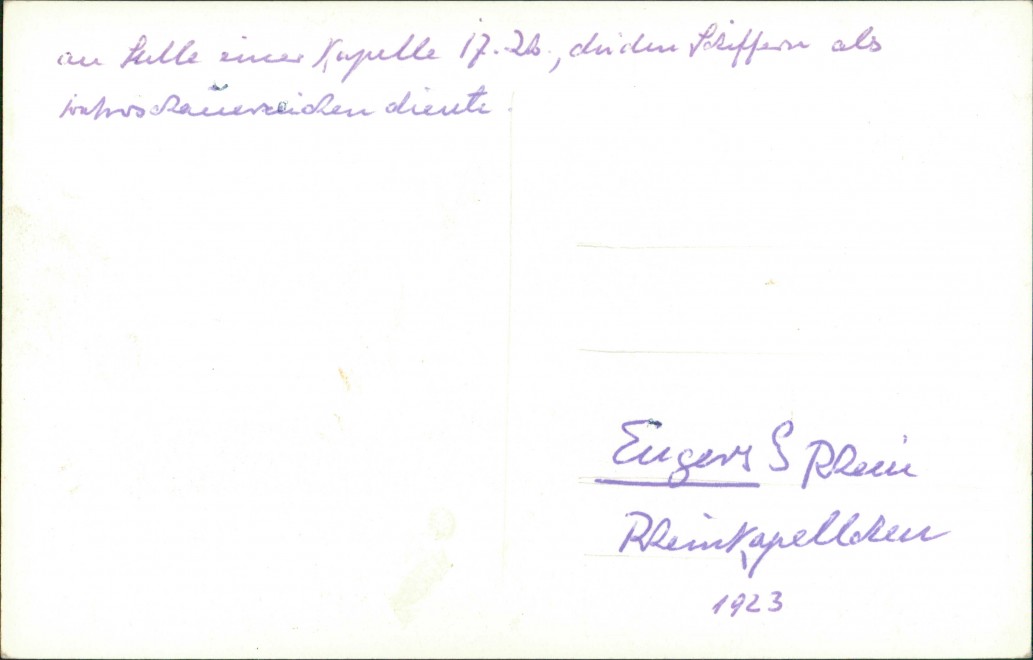 an Stelle einer Kapelle 17. Jh., die den Schiffern als
wahrschauerzeichen diente.
Engers Rhein
Rheinkapellchen
1923